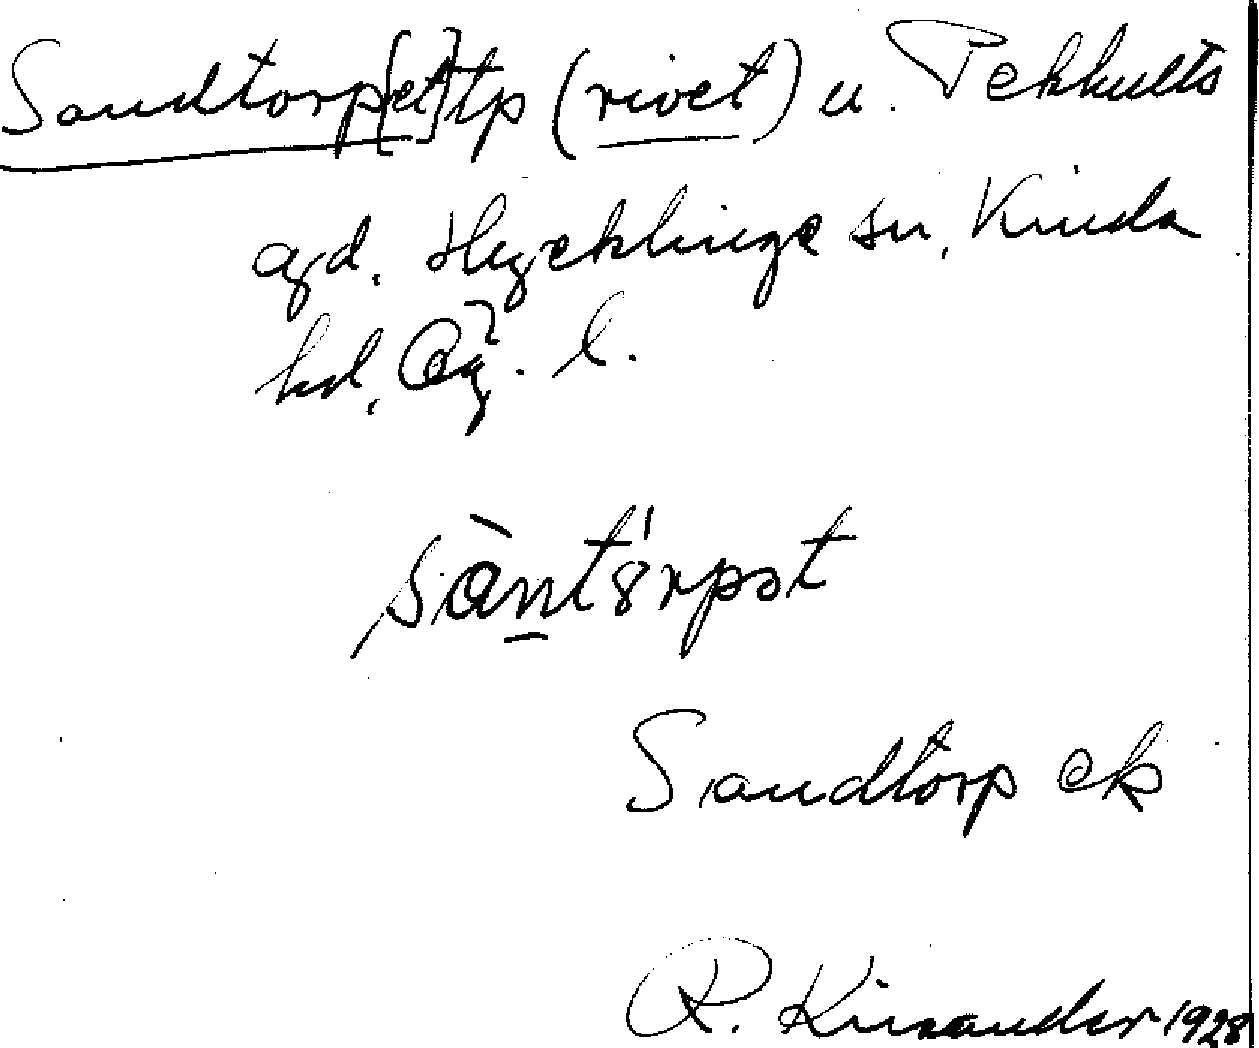 Sandtorp[et] tp (rivet) u. Pekhults
egd. Hycklinge sn, Kinda
hd, Ög. l.
Sandtorp ek
R. Kinander 1928